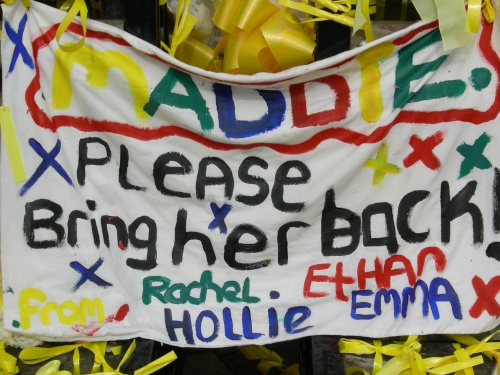 MADDIE.
x PLEASE x x x
Bring her back!
x x
Rachel EtHAN
from HOLLiE EMMA x